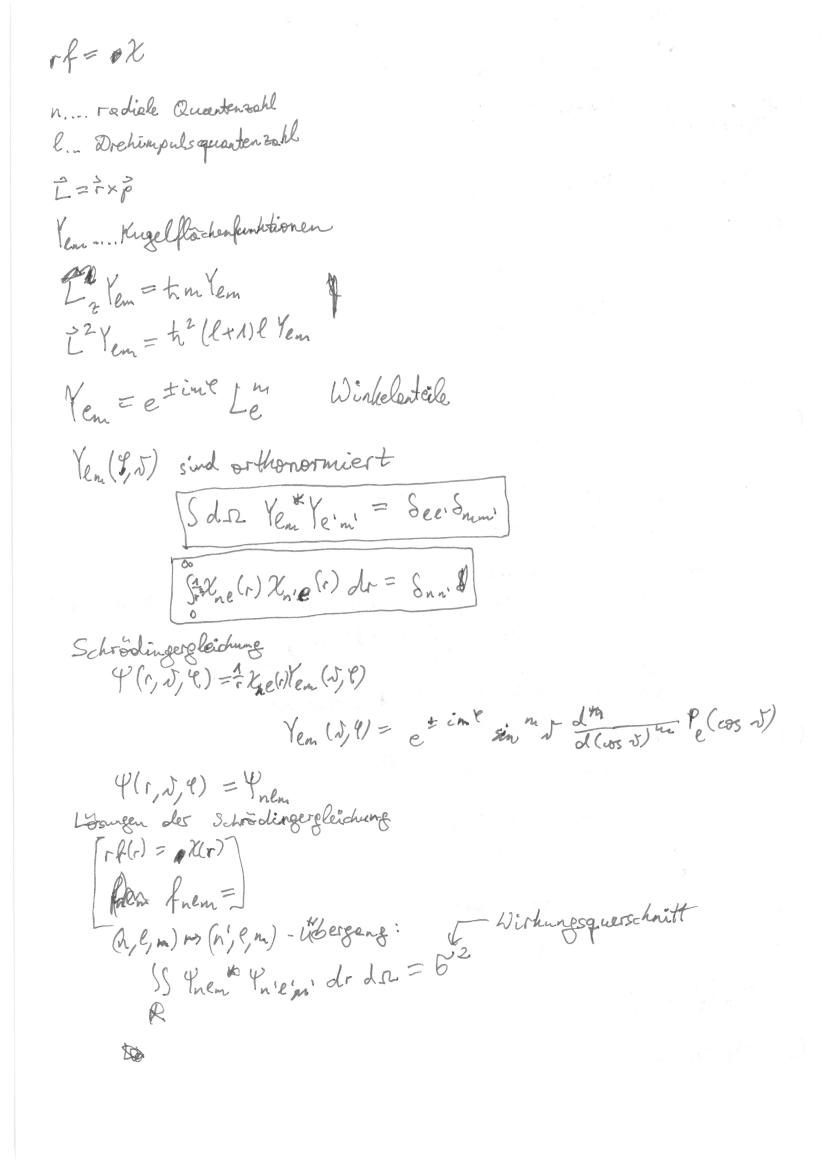 rf = χ
n.... radiale Quantenzahl
l... Drehimpulsquantenzahl
L⃗ = r⃗ × p⃗
Yₗₘ .... Kugelflächenfunktionen
L_z Yₗₘ = ħ m Yₗₘ
L⃗² Yₗₘ = ħ² (l+1) l Yₗₘ
Yₗₘ = e^{± imφ} Lₗᵐ Winkelanteile
Yₗₘ (φ,ϑ) sind orthonormiert
∫ dΩ Yₗₘ* Yₗ'ₘ' = δₗₗ' δₘₘ'
∫₀^∞ χₙₗ(r) χₙ'ₗ(r) dr = δₙₙ'
Schrödingergleichung
Ψ(r,ϑ,φ) = 1/r χₙₗ(r) Yₗₘ (ϑ,φ)
Yₗₘ (ϑ,φ) = e^{± imφ} sin^m ϑ d^m / d(cos ϑ)^m Pₗ (cos ϑ)
Ψ(r,ϑ,φ) = Ψₙₗₘ
Lösungen der Schrödingergleichung
rf(r) = χ(r)
fₙₗₘ =
(n,l,m) → (n',l,m) - Übergang: Wirkungsquerschnitt
∬ Ψₙₗₘ* Ψₙ'ₗ'ₘ' dr dΩ = σ²
R